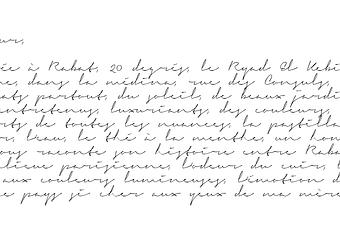 ur,
ée à Rabat, 20 degrés, le Ryad El Kebi
ne, dans la médina, rue des Consuls,
ats partout, du soleil, de beaux jardi
entretenus, luxuriants, des couleurs,
rts de toutes les nuances, la pastilla
r, l'eau, le thé à la menthe, un hom
ous raconte son histoire entre Raba
lieue parisienne, l'odeur du cuir, l
aux couleurs lumineuses, l'émotion d
e pays si cher aux yeux de ma mère